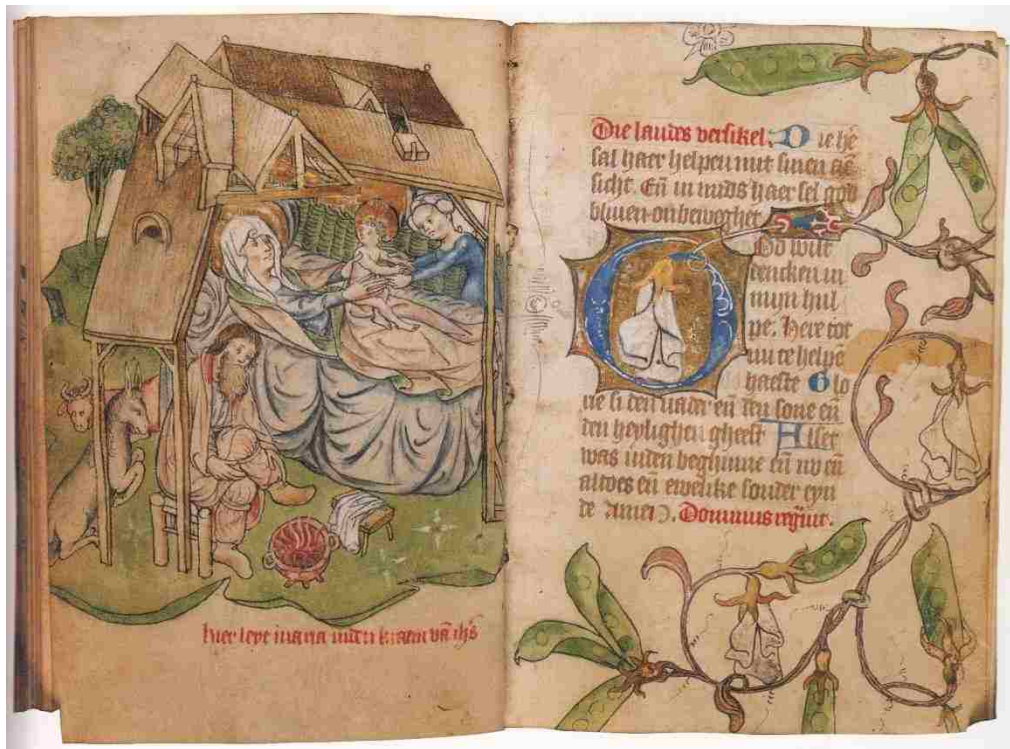 hier leyt maria inden kraem vā ihs
Die laudes versikel. Die he
sal haer helpen mit sinen aē
sicht. Eñ in mids haer sel god
bliuen onbeweghet
God wilt
dencken in
mijn hul
pe. Here tot
mi te helpē
haeste Glo
rie si den vader eñ den sone eñ
den heylighen gheest Alset
was inden beghinne eñ nv eñ
altoes eñ ewelike sonder eyn
de Amen. Dominus regnuit.